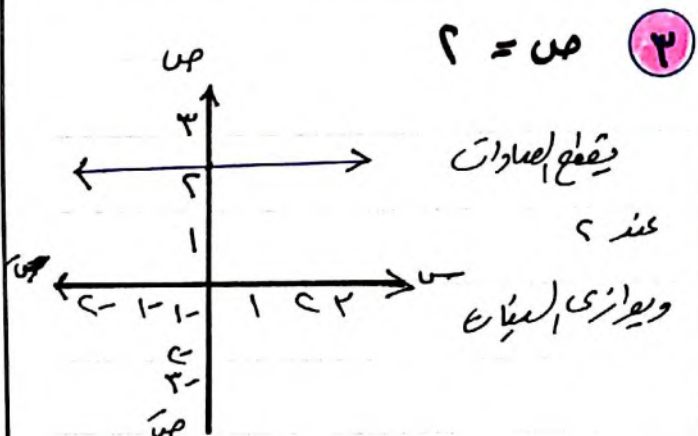 ٣ ص = ٢
يقطع الصادات
عند ٢
ويوازي السينات
ص
٣
٢
١
س
-٢ -١ -١ ١ ٢ ٣
-٢
-٣
صَ